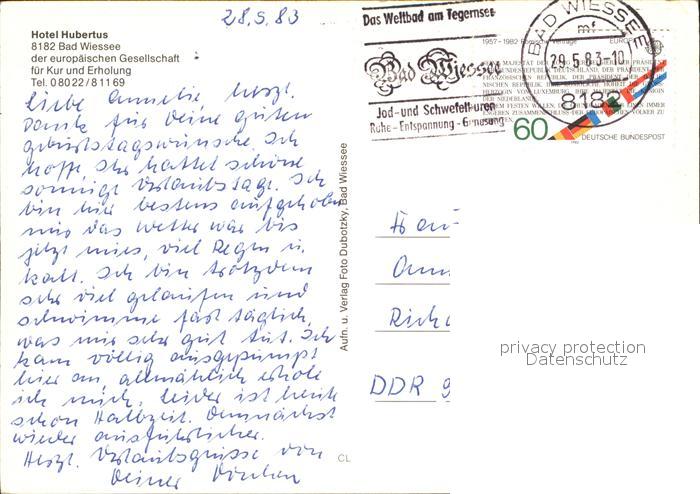 28.5.83
Hotel Hubertus
8182 Bad Wiessee
der europäischen Gesellschaft
für Kur und Erholung
Tel. 08022/81169
Liebe Annelie, herzl.
Dank für Deine guten
Geburtstagswünsche. Ich
hoffe, Ihr hattet schöne
sonnige Urlaubstage. Ich
bin hier bestens aufgehoben
nur das Wetter war bis
jetzt mies, viel Regen u.
kalt. Ich bin trotzdem
sehr viel gelaufen und
schwimme fast täglich,
was mir sehr gut tut. Ich
kam völlig ausgepumpt
hier an, allmählich erhole
ich mich, leider ist heute
schon Halbzeit. Demnächst
wieder ausführlicher.
Herzl. Urlaubsgrüsse von
Deiner
Aufn. u. Verlag Foto Dubotzky, Bad Wiessee
CL
Das Weltbad am Tegernsee
Bad Wiessee
Jod- und Schwefelkuren
Ruhe - Entspannung - Genesung
BAD WIESSEE
mf
29.5.83-10
8182
1957-1982 Römische Verträge EUROPA
60
DEUTSCHE BUNDESPOST
1982
Frau
Ann
Rich
DDR 9
privacy protection
Datenschutz